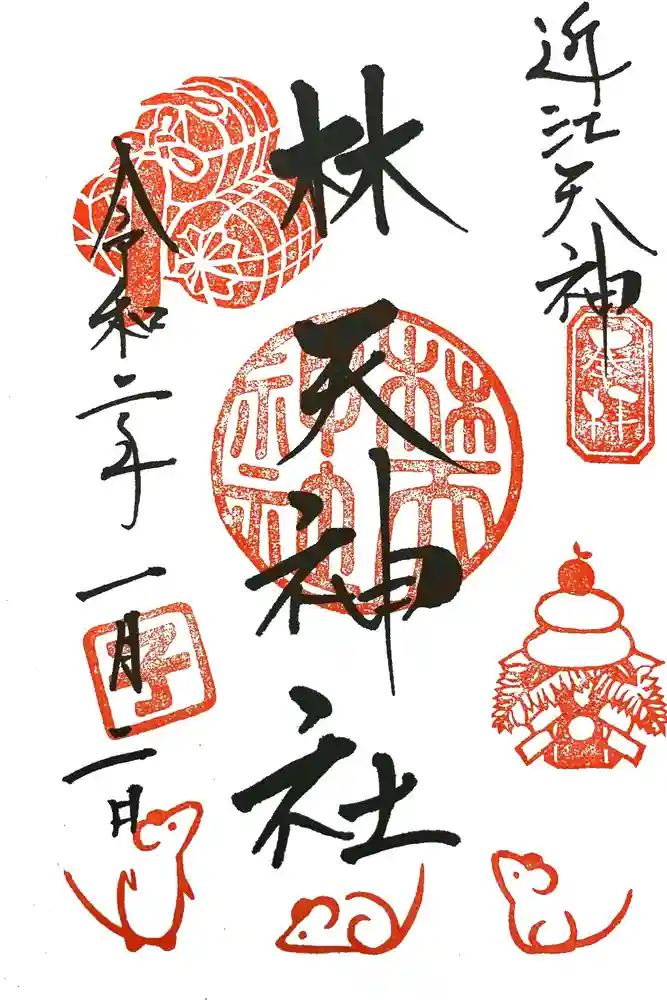 近江天神
奉拝
林天神社
林天神社
令和二年一月二日
子